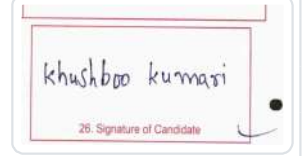 khushboo kumari
26. Signature of Candidate